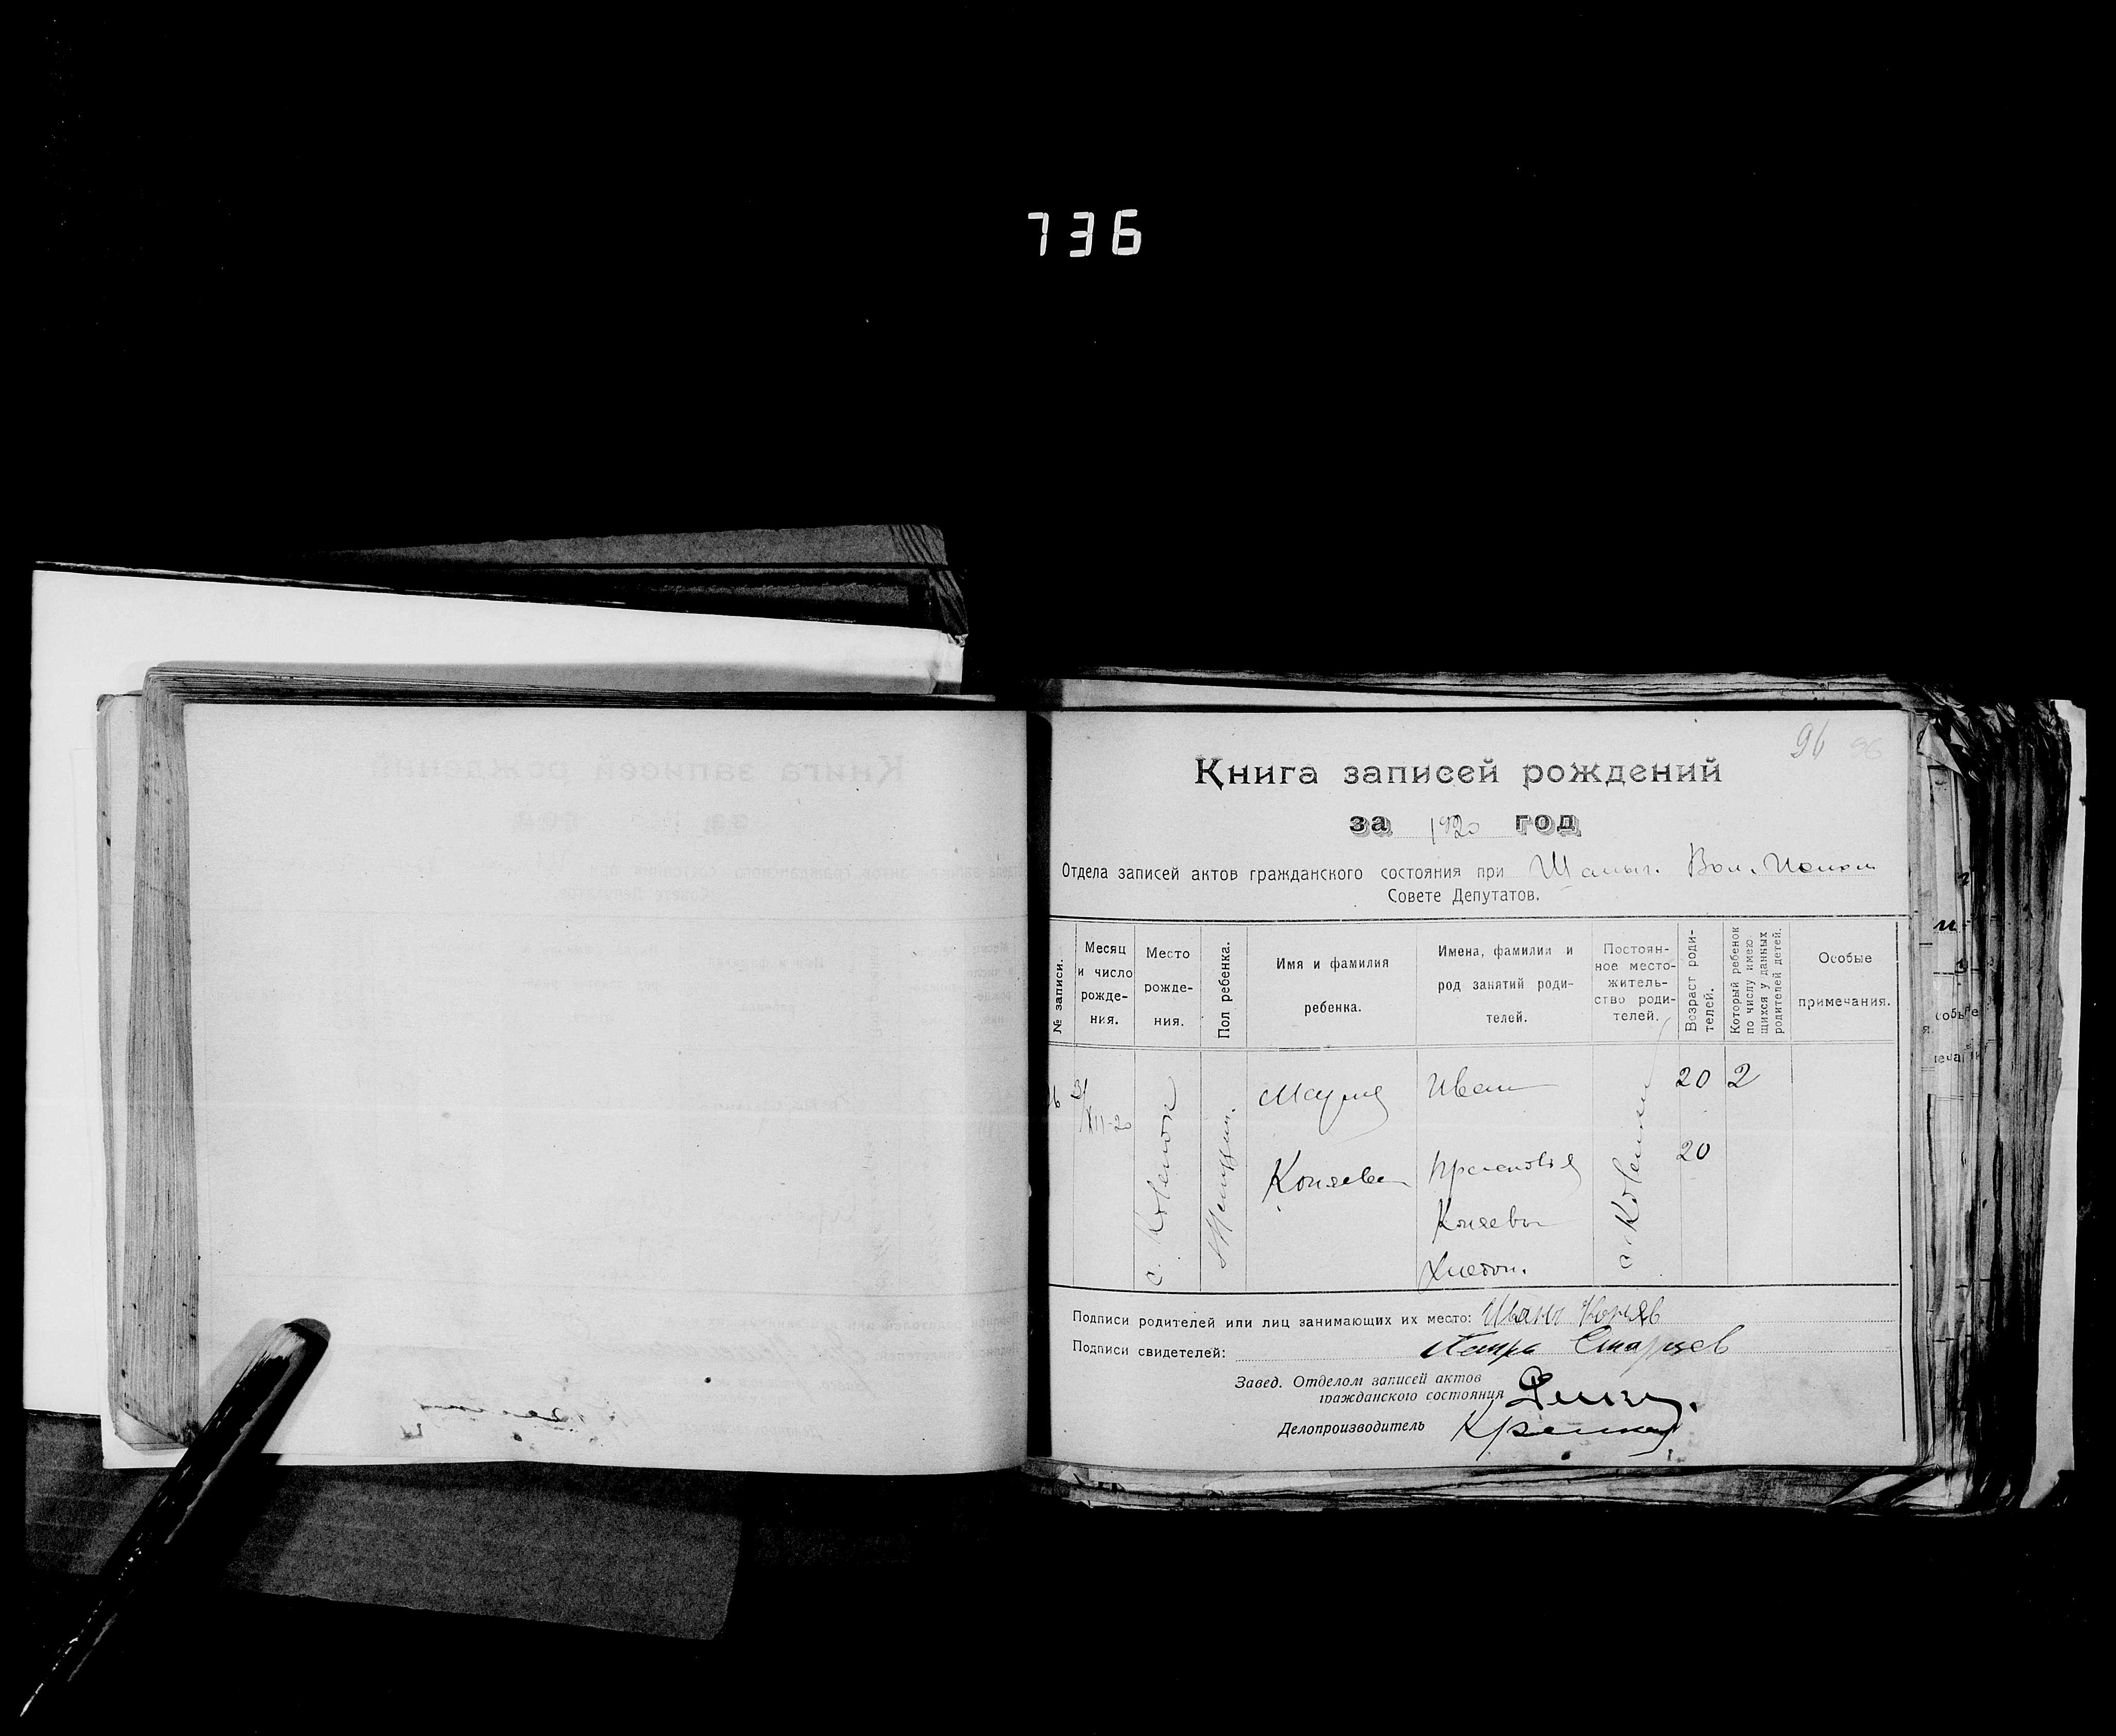 736
96 96
Книга записей рождений
за 1920 год
Отдела записей актов гражданского состояния при Шамыг. Вол. Исполк
Совете Депутатов.
№ записи.
Месяц и число рожде-ния.
Место рожде-ния.
Пол ребенка.
Имя и фамилия ребенка.
Имена, фамилии и род занятий роди-телей.
Постоян-ное место-житель-ство роди-телей.
Возраст роди-телей.
Который ребенок по числу имею щихся у данных родителей детей.
Особые примечания.
XII-20
с.
Мария
Коняева
Иван
Прасковья
Коняевы
20
20
2
Подписи родителей или лиц занимающих их место: Иванъ Коняев
Подписи свидетелей: Старцев
Завед. Отделом записей актов
гражданского состояния
Делопроизводитель